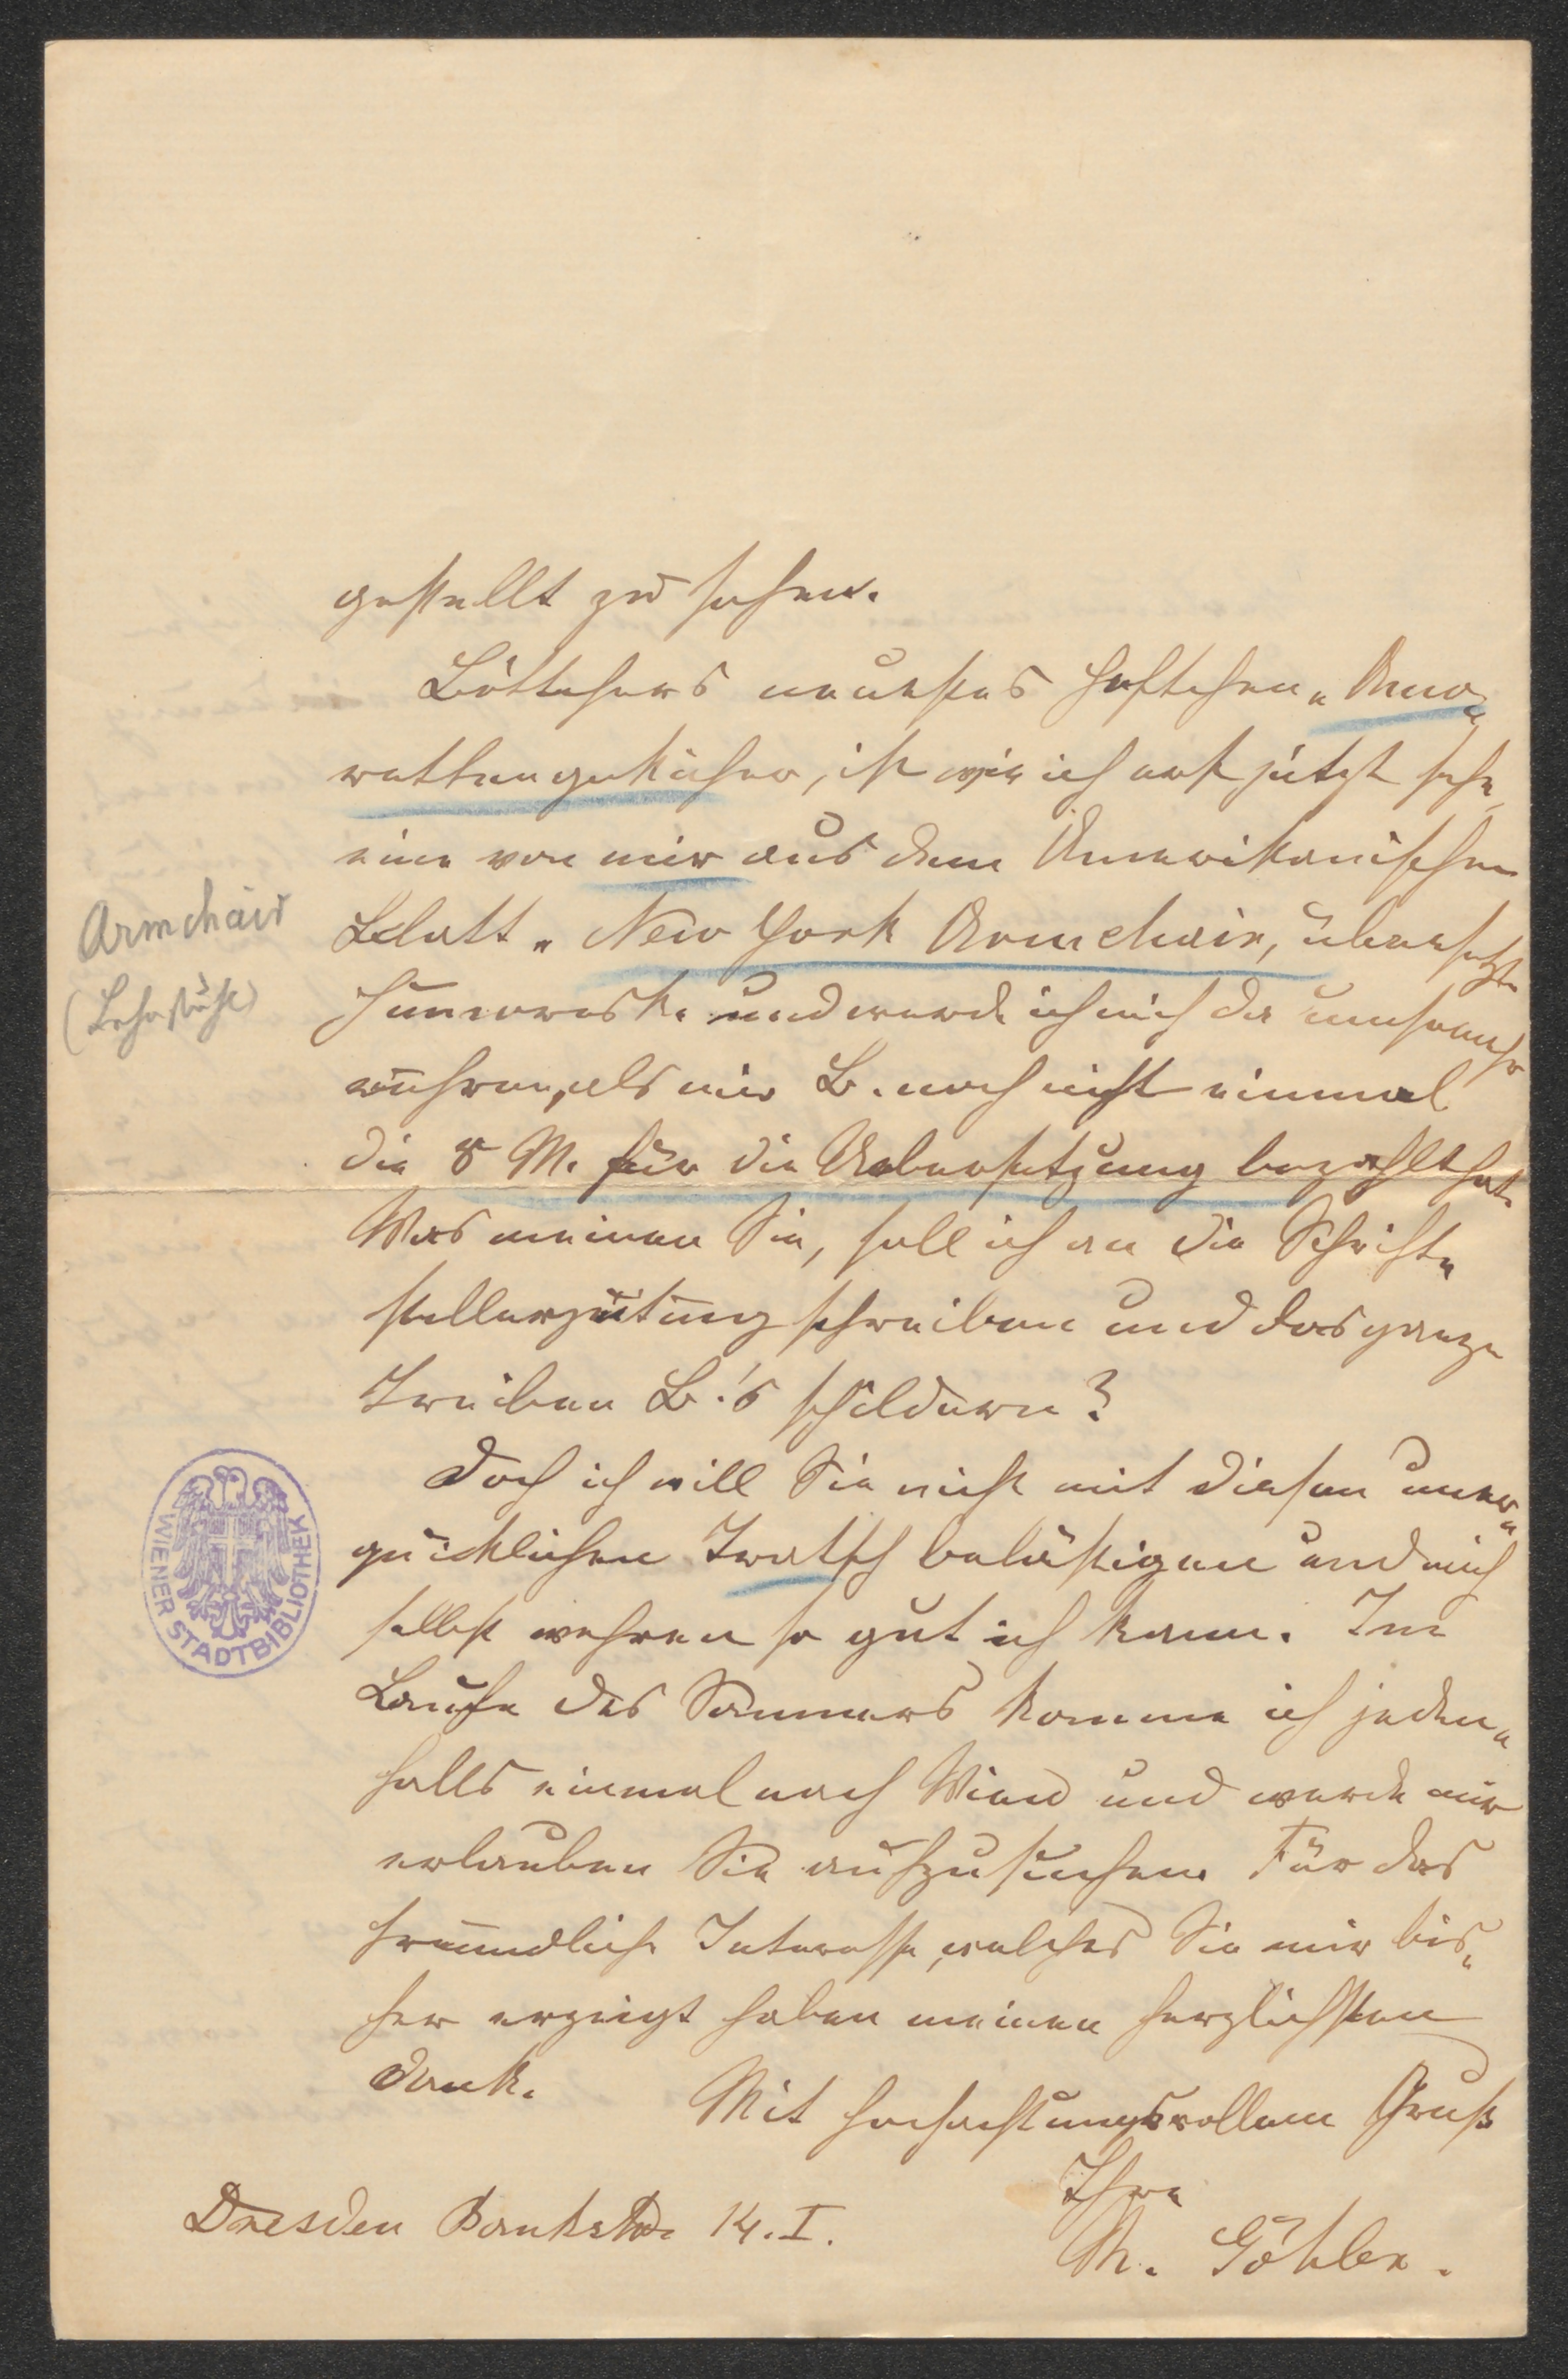 gestellt zu sehen.
Böttchers neuestes Heftchen „Kra=
wattengekicher, ist wie ich erst jetzt sehe,
eine von mir aus dem Amerikanischen
Blatt „New York Armchair, übersetzte
Humoreske und werde ich mich da umsomehr
wehren, als mir B. noch nicht einmal
die 8 M. für die Uebersetzung bezahlt hat.
Was meinen Sie, soll ich an die Schrift=
stellerzeitung schreiben und das ganze
Treiben B.'s schildern?
Doch ich will Sie nicht mit diesem uner=
quicklichen Tratsch belästigen und mich
selbst wehren so gut ich kann. Im
Laufe des Sommers komme ich jeden=
falls einmal nach Wien und werde mir
erlauben Sie aufzusuchen. Für das
freundliche Interesse, welches Sie mir bis=
her erzeigt haben meinen herzlichsten
Dank.
Mit hochachtungsvollem Gruß
Ihre
M. Göhler.
Dresden Bankstr. 14. I.
Armchair
(Lehnstuhl)
WIENER STADTBIBLIOTHEK